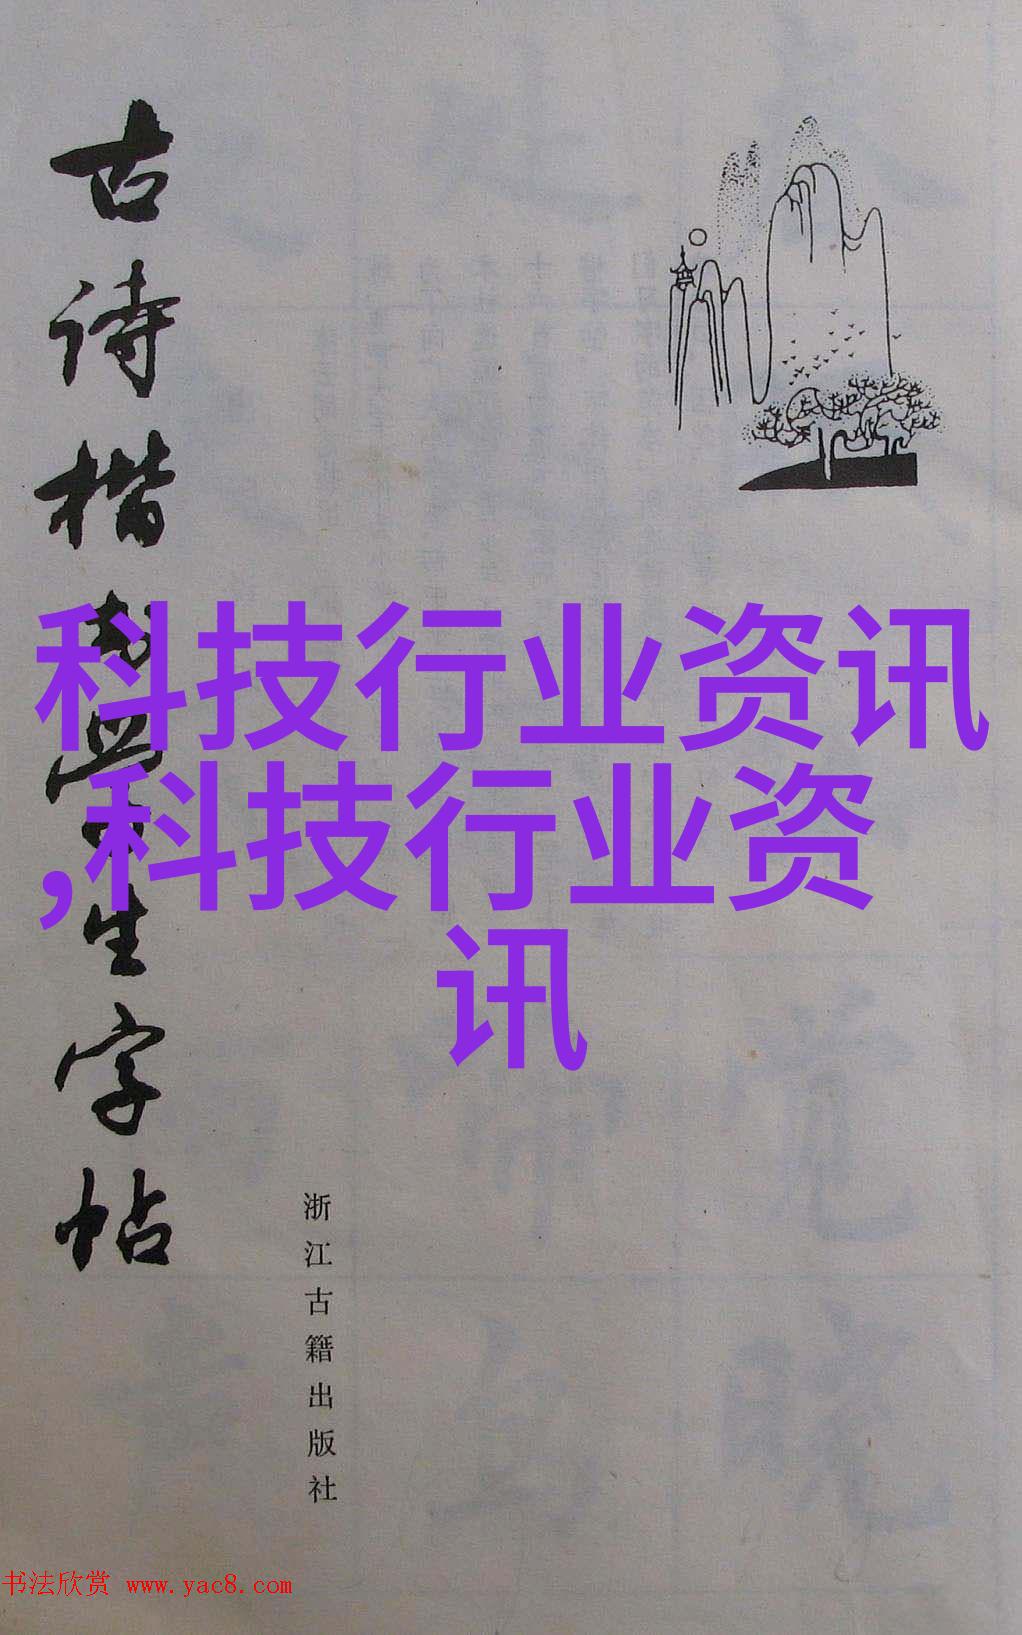 古诗楷书学生字帖
科技行业资讯
,科技行业资
讯
浙江古籍出版社
书法欣赏 www.yac8.com